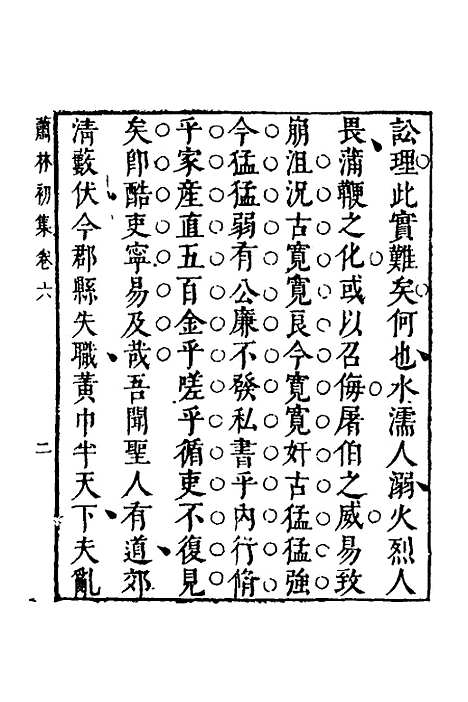 訟理此實難矣何也水濡人溺火烈人
畏蒲鞭之化或以召侮屠伯之威易致
崩沮況古寬寬良今寬寬奸古猛猛強
今猛猛弱有公廉不發私書乎內行脩
乎家産直五百金乎嗟乎循吏不復見
矣卽酷吏寧易及哉吾聞聖人有道郊
淸藪伏今郡縣失職黃巾半天下夫亂
蕭林初集卷六
二